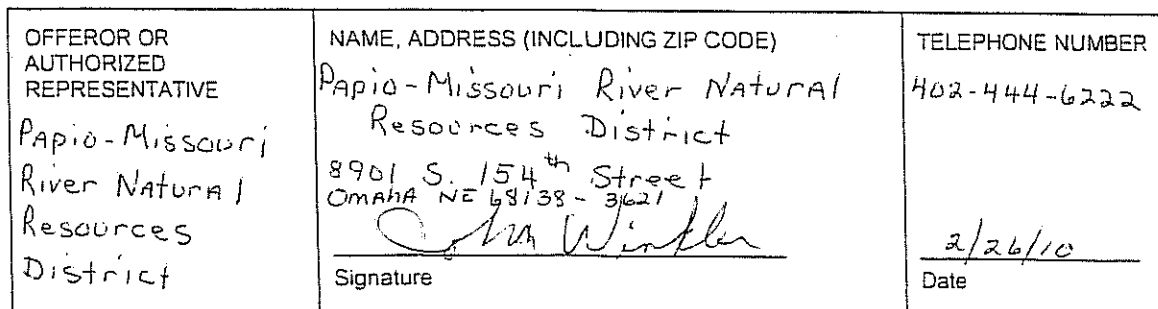 OFFEROR OR
AUTHORIZED
REPRESENTATIVE
Papio-Missouri
River Natural
Resources
District
NAME, ADDRESS (INCLUDING ZIP CODE)
Papio-Missouri River Natural
Resources District
8901 S. 154th Street
Omaha NE 68138-3621
John Winkler
Signature
TELEPHONE NUMBER
402-444-6222
2/26/10
Date